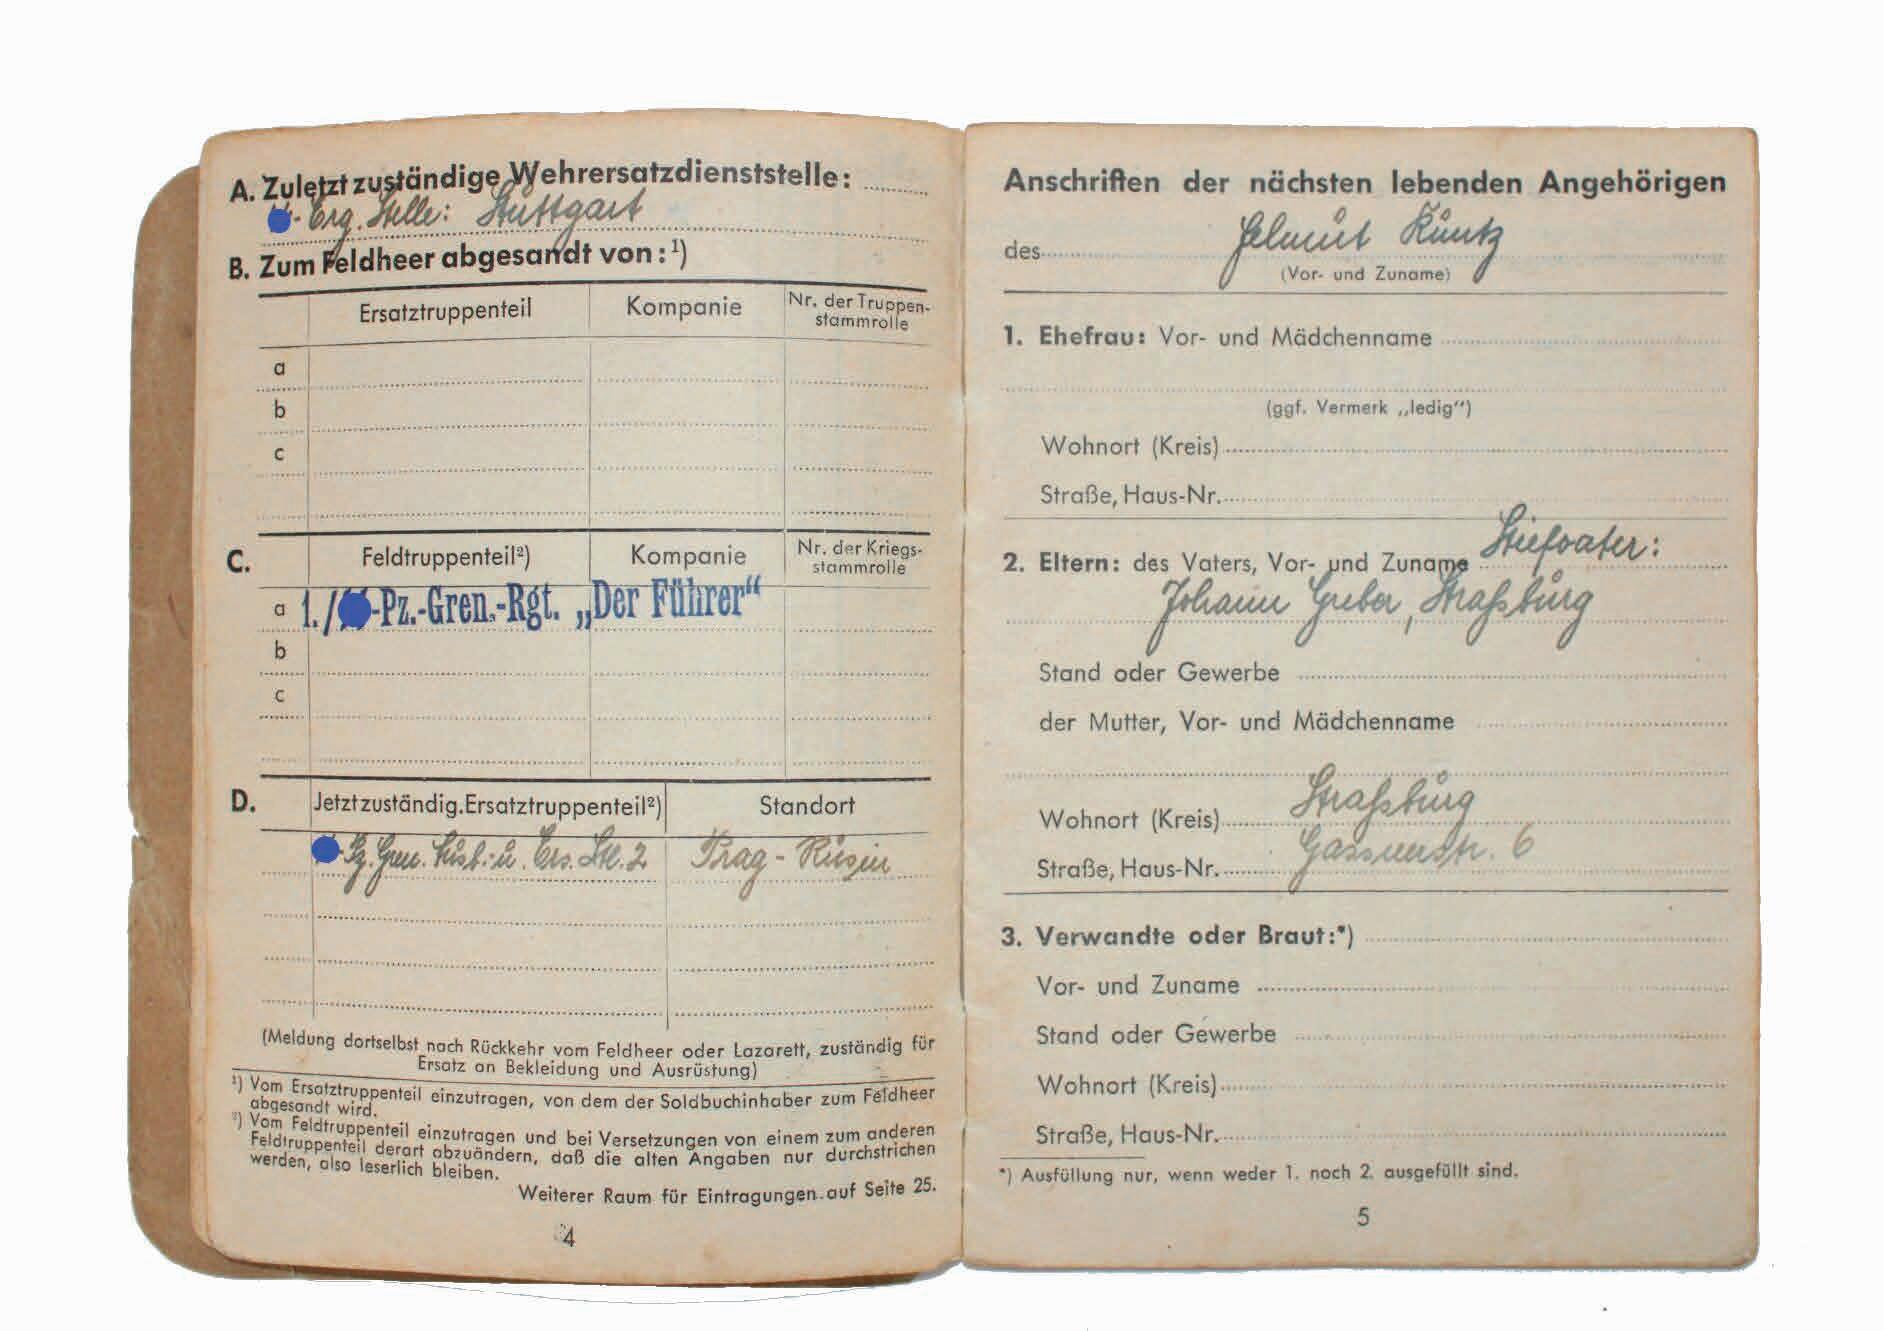 A. Zuletzt zuständige Wehrersatzdienststelle:
-Erg. Stelle: Stuttgart
B. Zum Feldheer abgesandt von:¹)
Ersatztruppenteil Kompanie Nr. der Truppen-
stammrolle
a
b
c
C. Feldtruppenteil²) Kompanie Nr. der Kriegs-
stammrolle
a 1./ -Pz.-Gren.-Rgt. „Der Führer“
b
c
D. Jetzt zuständig. Ersatztruppenteil²) Standort
Pz. Gren. Ausb.- u. Ers. Btl. 2 Prag - Rusin
(Meldung dortselbst nach Rückkehr vom Feldheer oder Lazarett, zuständig für
Ersatz an Bekleidung und Ausrüstung)
¹) Vom Ersatztruppenteil einzutragen, von dem der Soldbuchinhaber zum Feldheer
abgesandt wird.
²) Vom Feldtruppenteil einzutragen und bei Versetzungen von einem zum anderen
Feldtruppenteil derart abzuändern, daß die alten Angaben nur durchstrichen
werden, also leserlich bleiben.
Weiterer Raum für Eintragungen auf Seite 25.
4
Anschriften der nächsten lebenden Angehörigen
des Helmut Küntz
(Vor- und Zuname)
1. Ehefrau: Vor- und Mädchenname
(ggf. Vermerk „ledig“)
Wohnort (Kreis)
Straße, Haus-Nr.
2. Eltern: des Vaters, Vor- und Zuname Stiefvater:
Johann Greber, Straßburg
Stand oder Gewerbe
der Mutter, Vor- und Mädchenname
Wohnort (Kreis) Straßburg
Straße, Haus-Nr. 6
3. Verwandte oder Braut:*)
Vor- und Zuname
Stand oder Gewerbe
Wohnort (Kreis)
Straße, Haus-Nr.
*) Ausfüllung nur, wenn weder 1. noch 2. ausgefüllt sind.
5